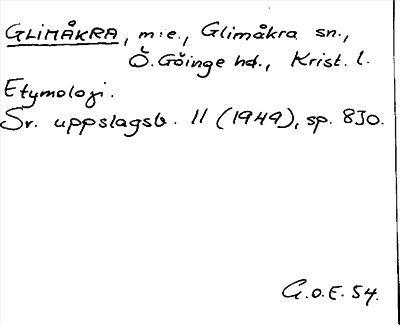 GLIMÅKRA, m:e., Glimåkra sn.,
Ö. Göinge hd., Krist. l.
Etymologi.
Sv. uppslagsb. 11 (1949), sp. 830.
G.O.E. 54.